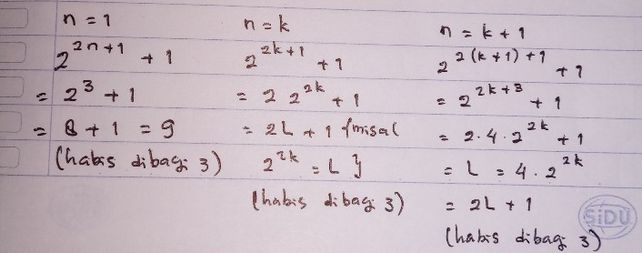 n = 1
2^{2n+1} + 1
= 2^3 + 1
= 8 + 1 = 9
(habis dibagi 3)
n = k
2^{2k+1} + 1
= 2 2^{2k} + 1
= 2L + 1 {misal
2^{2k} = L }
(habis dibagi 3)
n = k + 1
2^{2(k+1)+1} + 1
= 2^{2k+3} + 1
= 2.4.2^{2k} + 1
= L = 4.2^{2k}
= 2L + 1
(habis dibagi 3)
SiDU